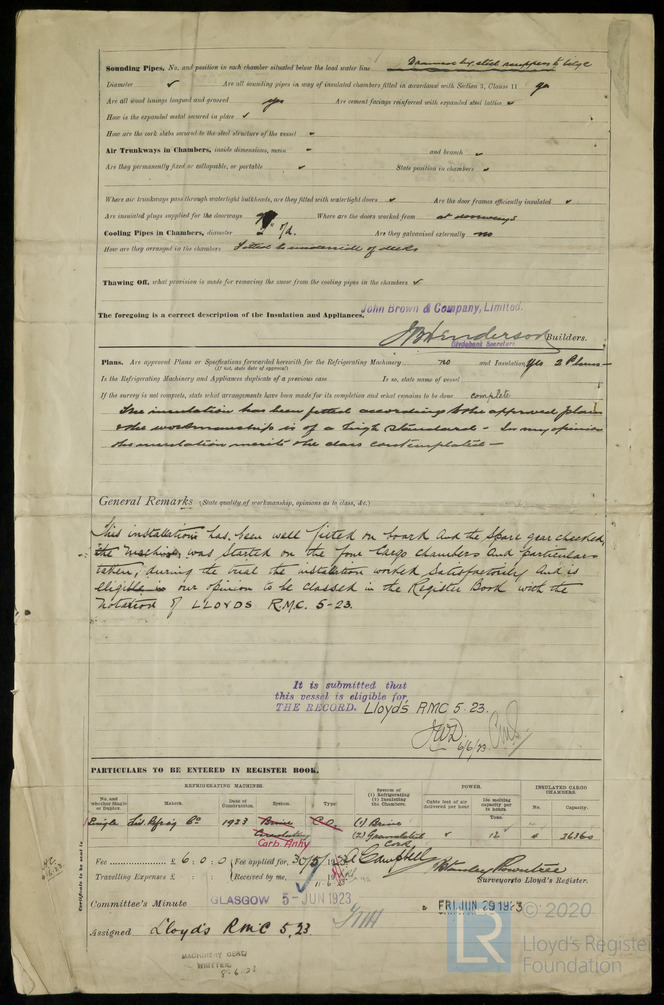 Sounding Pipes, No. and position in each chamber situated below the load water line
Diameter ✓ Are all sounding pipes in way of insulated chambers fitted in accordance with Section 3, Clause 11 yes
Are all wood linings tongued and grooved yes Are cement facings reinforced with expanded steel lattice ✓
How is the expanded metal secured in place ✓
How are the cork slabs secured to the steel structure of the vessel
Air Trunkways in Chambers, inside dimensions, main and branch ✓
Are they permanently fixed or collapsible, or portable ✓ State position in chambers ✓
Where air trunkways pass through watertight bulkheads, are they fitted with watertight doors ✓ Are the door frames efficiently insulated ✓
Are insulated plugs supplied for the doorways Where are the doors worked from at doorways
Cooling Pipes in Chambers, diameter 2" Are they galvanised externally no
How are they arranged in the chambers Fitted to underside of decks
Thawing Off, what provision is made for removing the snow from the cooling pipes in the chambers ✓
The foregoing is a correct description of the Insulation and Appliances. John Brown & Company, Limited.
J B Henderson Builders.
Clydebank Secretary.
Plans. Are approved Plans or Specifications forwarded herewith for the Refrigerating Machinery no and Insulation yes 2 Plans
(If not, state date of approval)
Is the Refrigerating Machinery and Appliances duplicate of a previous case If so, state name of vessel
If the survey is not complete, state what arrangements have been made for its completion and what remains to be done complete
The insulation has been fitted according to the approved plan
& the workmanship is of a high standard - In my opinion
the insulation merits the class contemplated -
General Remarks (State quality of workmanship, opinions as to class, &c.)
This installation has been well fitted on board and the spare gear checked,
the machine, was started on the four cargo chambers and particulars
taken, during the trial the installation worked satisfactorily and is
eligible in our opinion to be classed in the Register Book with the
notation of LLOYDS R.M.C. 5-23.
It is submitted that
this vessel is eligible for
THE RECORD. Lloyd's RMC 5.23.
6/6/23
PARTICULARS TO BE ENTERED IN REGISTER BOOK.
REFRIGERATING MACHINES.
No. and whether Single or Duplex. Makers. Date of Construction. System. Type.
System of (1) Refrigerating (2) Insulating the Chambers.
POWER.
Cubic feet of air delivered per hour Ice melting capacity per 24 hours Tons.
INSULATED CARGO CHAMBERS.
No. Capacity.
Single Refrig Co 1923 Brine C.O. (1) Brine
Circulating (2) Granulated Cork ✓ 12 4 36360
Carb. Anhy
Fee £ 6 : 0 : 0 Fee applied for, 30/5/1923 A Campbell
Travelling Expenses £ : : Received by me, 11-6-23
Stanley Rowntree
Surveyors to Lloyd's Register.
Certificate to be sent to
Committee's Minute GLASGOW 5 - JUN 1923 FRI. JUN 29 1923
Assigned Lloyd's RMC 5,23.
MACHINERY CERT
WRITTEN 8-6-23
LR
© 2020
Lloyd's Register
Foundation